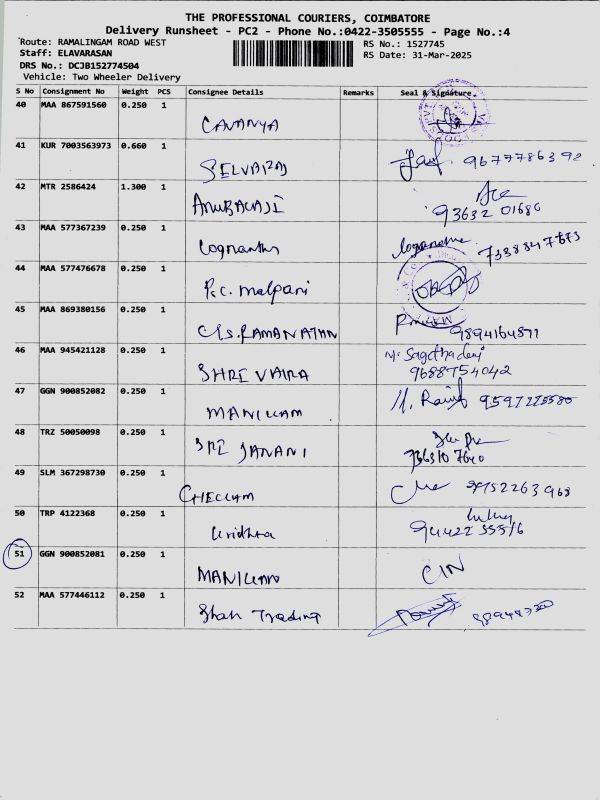 THE PROFESSIONAL COURIERS, COIMBATORE
Delivery Runsheet - PC2 - Phone No.:0422-3505555 - Page No.:4
Route: RAMALINGAM ROAD WEST
RS No.: 1527745
Staff: ELAVARASAN
RS Date: 31-Mar-2025
DRS No.: DCJB152774504
Vehicle: Two Wheeler Delivery
S No Consignment No Weight PCS Consignee Details Remarks Seal & Signature
40 MAA 867591560 0.250 1
CAVANYA
41 KUR 7003563973 0.660 1
SELVARAJ 9677786392
42 MTR 2586424 1.300 1
ANUBALAJI 93632 01686
43 MAA 577367239 0.250 1
Loganathn 7338347673
44 MAA 577476678 0.250 1
P.C. Malpani
45 MAA 869380156 0.250 1
RAMANATAN 9894164871
46 MAA 945421128 0.250 1
SHRE VAIRA 9688754042
47 GGN 900852082 0.250 1
MANICKAM 9597225580
48 TRZ 50050098 0.250 1
SRI JANANI
49 SLM 367298730 0.250 1
CHELLAM 9752263968
50 TRP 4122368 0.250 1
Uridhra
51 GGN 900852081 0.250 1
MANICKAM
52 MAA 577446112 0.250 1
Shah Trading